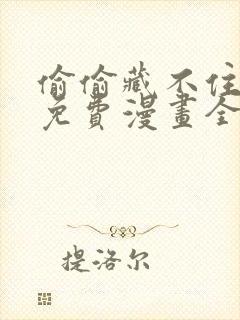 偷偷藏不住
免費漫畫全
提洛尔